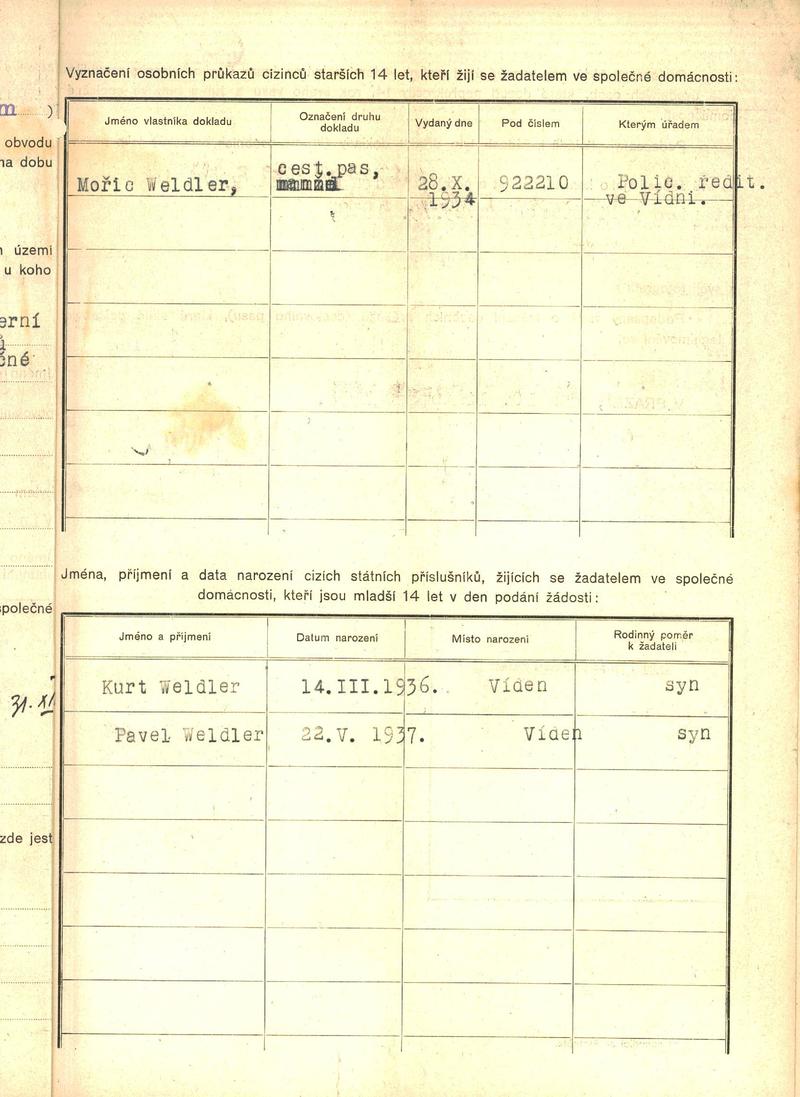 Vyznačení osobních průkazů cizinců starších 14 let, kteří žijí se žadatelem ve společné domácnosti:
Jméno vlastníka dokladu
Označení druhu
dokladu
Vydaný dne
Pod číslem
Kterým úřadem
Mořic Weldler,
cest.pas,
28.X.
1934
922210
Polic. ředit.
ve Vídni.
m )
obvodu
na dobu
území
u koho
erní
čné
společné
31. XI
zde jest
Jména, příjmení a data narození cizích státních příslušníků, žijících se žadatelem ve společné
domácnosti, kteří jsou mladší 14 let v den podání žádosti:
Jméno a příjmení
Datum narození
Místo narození
Rodinný poměr
k žadateli
Kurt Weldler 14.III.1936. Víden syn
Pavel Weldler 22.V. 1937. Víden syn